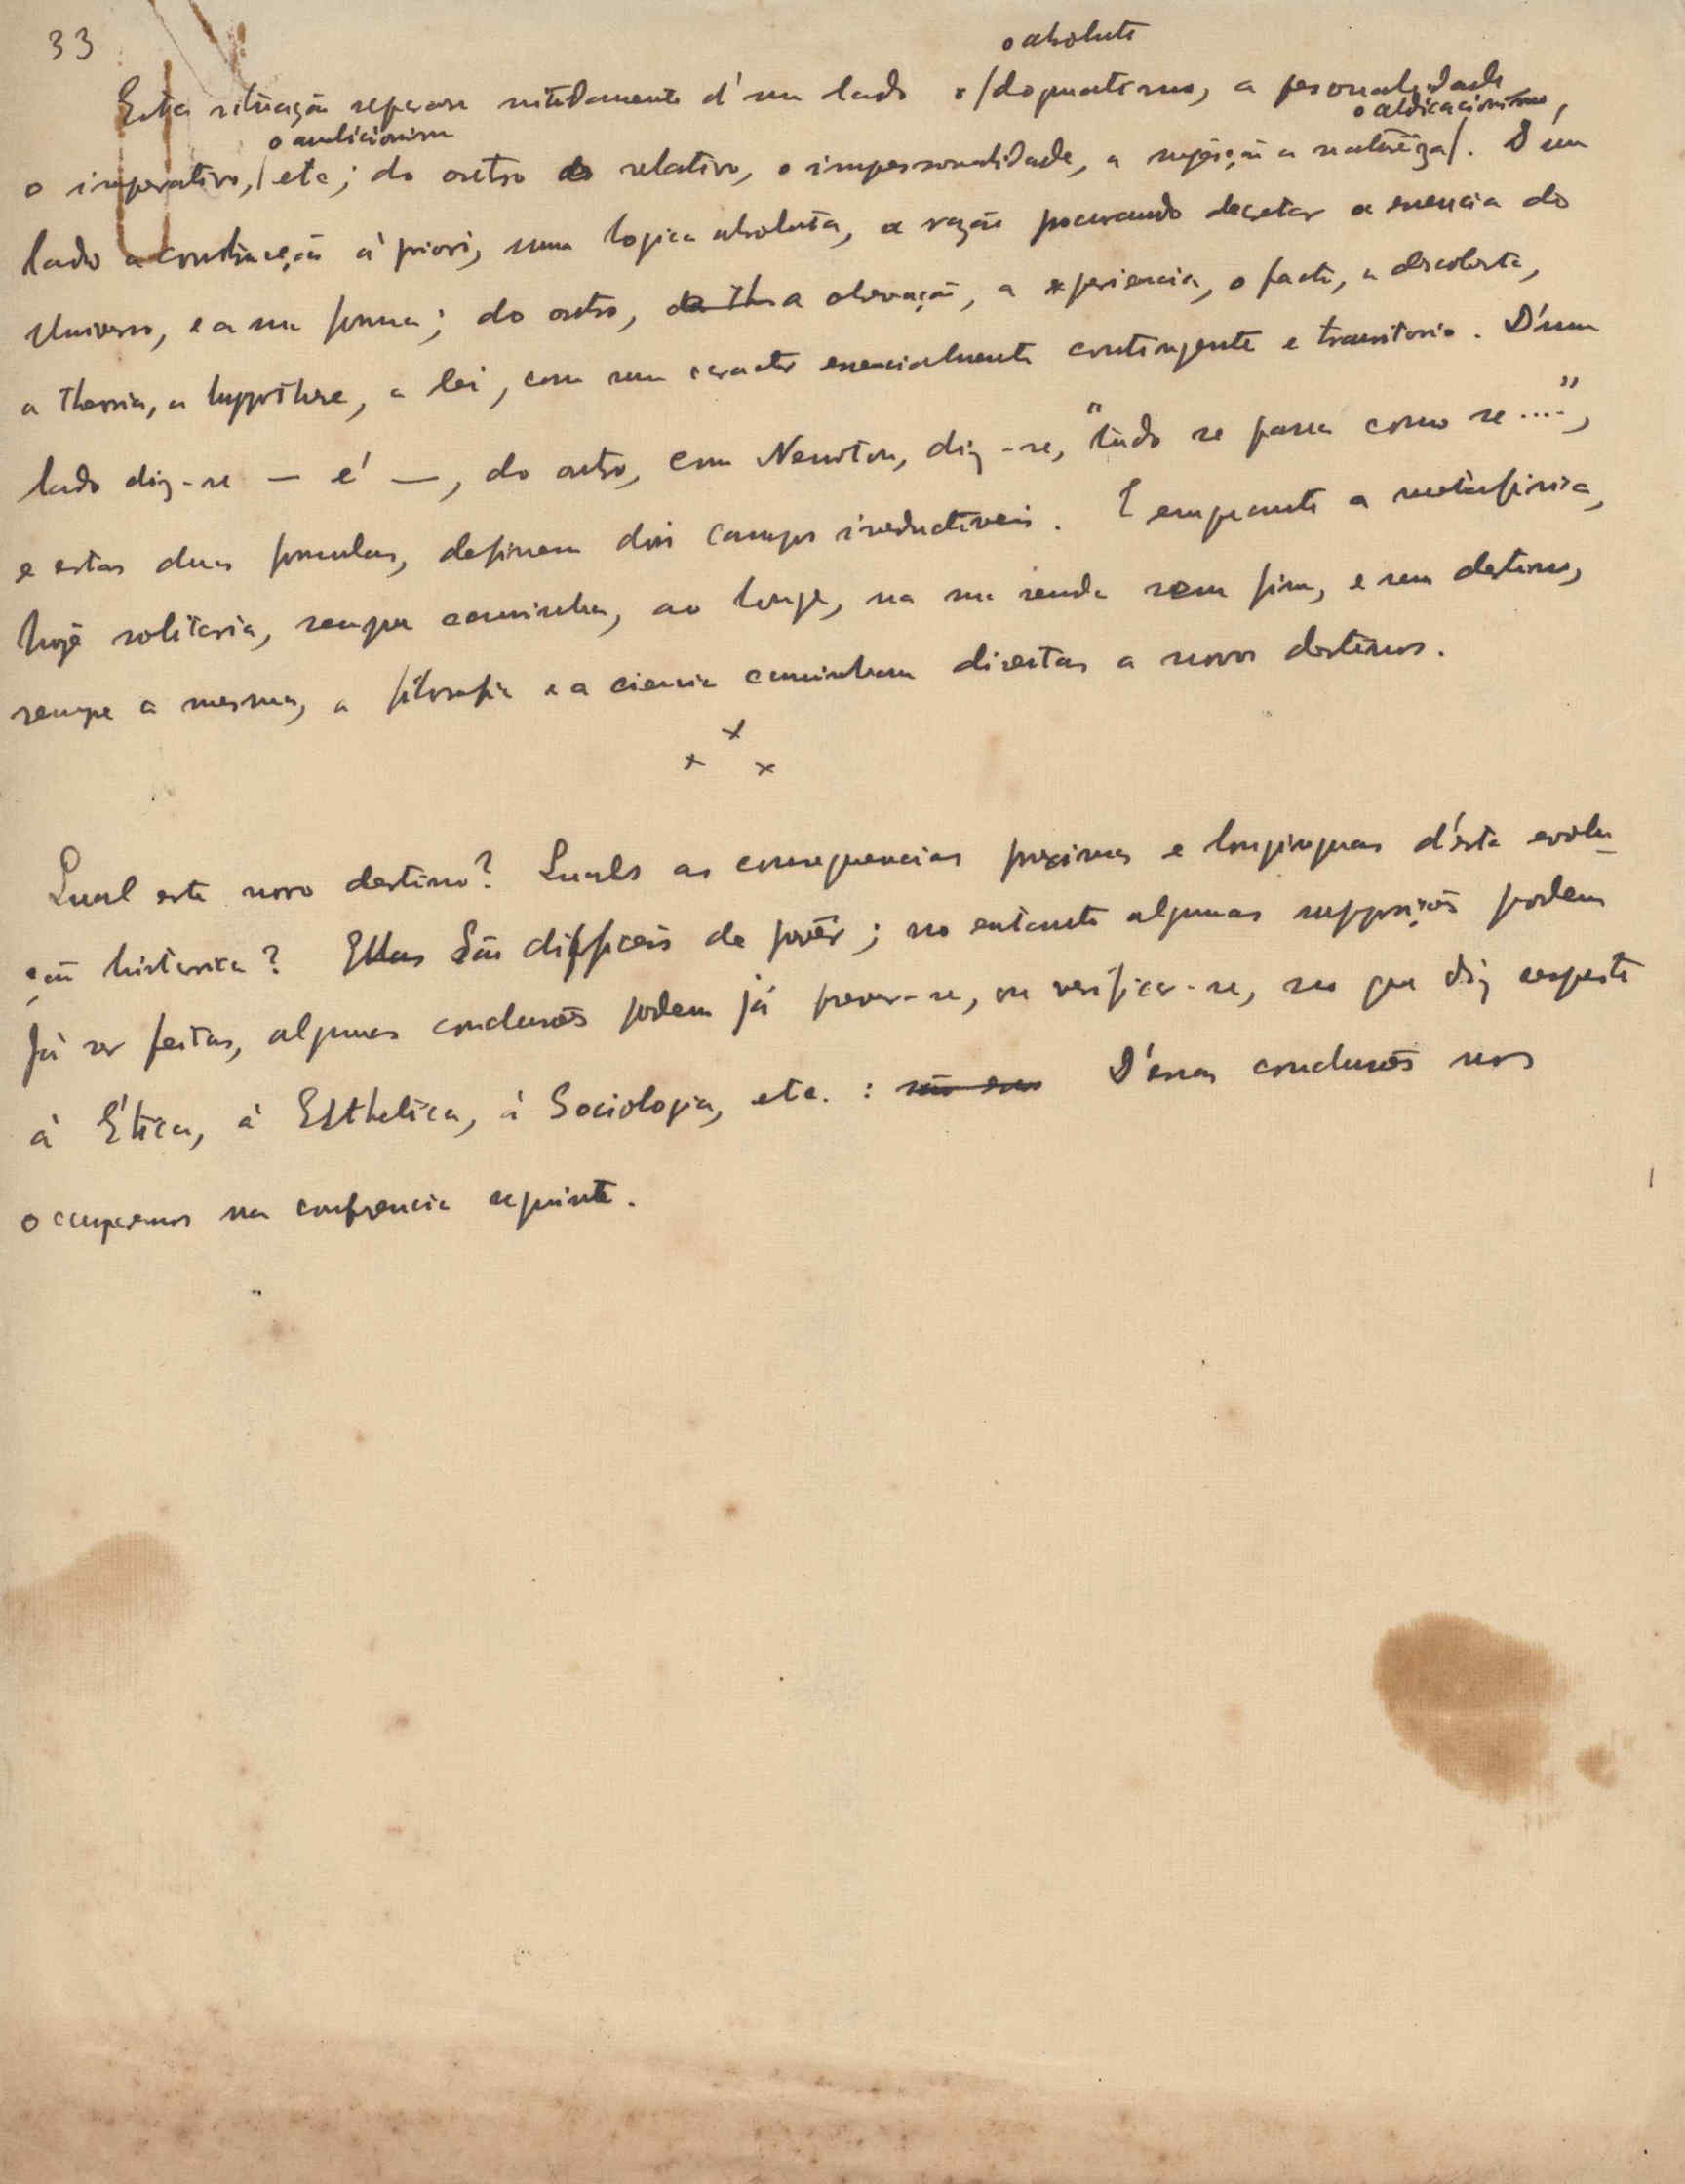 33
o absoluto
Esta situação separou nitidamente d'um lado o /dogmatismo, a personalidade
o abdicacionismo,
o ambicionismo
o imperativo, / etc; do outro o relativo, o impersonalidade, a sujeição a naturêza/. D'um
lado a construcção á priori, uma logica absoluta, a razão procurando decretar a essencia do
Universo, e a sua forma; do outro, a observação, a experiencia, o facto, a descoberta,
a theoria, a hypothese, a lei, com um caracter essencialmente contingente e transitorio. D'um
lado diz-se — é —, do outro, com Newton, diz-se, "tudo se passa como se....",
e estas duas formulas, definem dois campos irreductiveis. E emquanto a metafisica,
hoje solitaria, sempre caminha, ao longe, na sua senda sem fim, e sem destino,
sempre a mesma, a filosofia e a ciencia caminham direitas a novos destinos.
x
x x
Qual este novo destino? Quaes as consequencias proximas e longinquas d'ésta evolu-
ção historica? Ellas são difficeis de prevêr; no entanto algumas supposições podem
já ser feitas, algumas conclusões podem já prever-se, ou verificar-se, no que diz respeito
á Ética, á Esthetica, á Sociologia, etc. : D'éssas conclusões nos
occuparemos na conferencia seguinte.